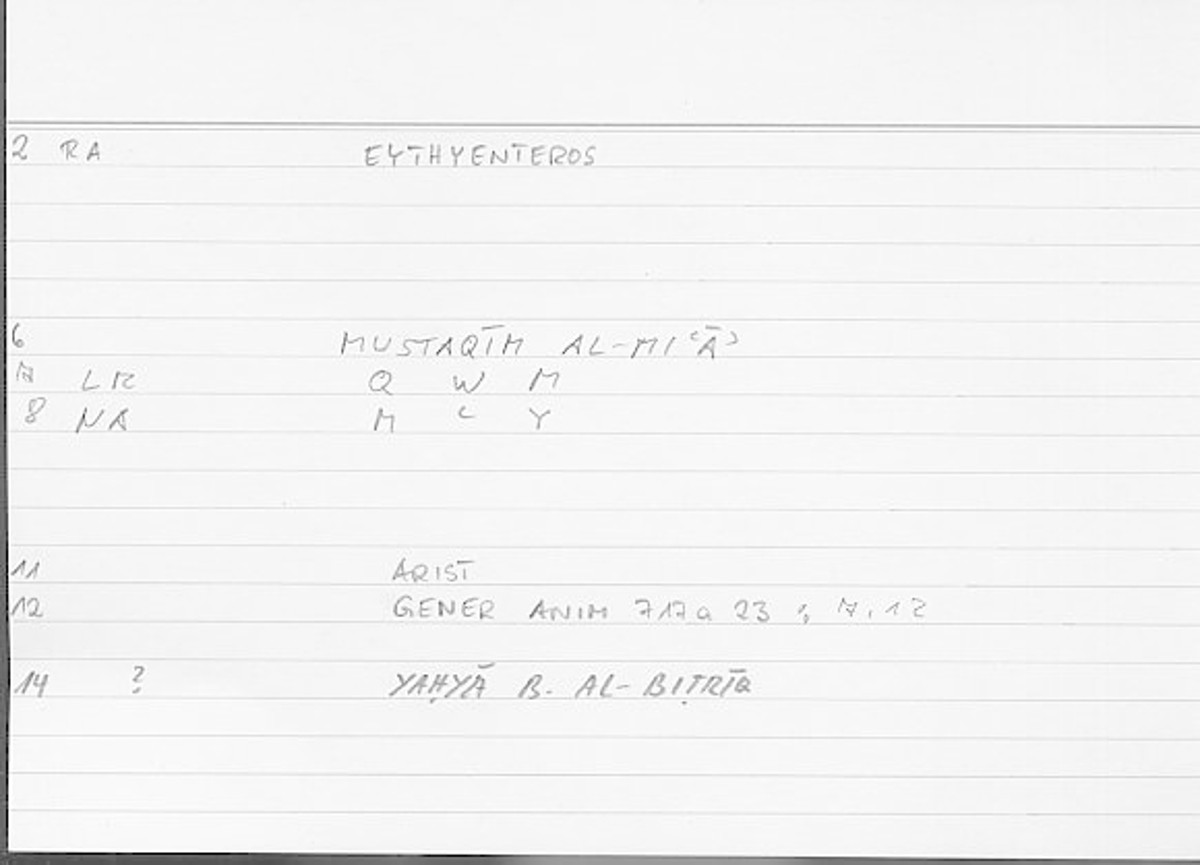 2 RA EYTHYENTEROS
6 MUSTAQĪM AL-MIʿĀʾ
7 LR Q W M
8 NA M ʿ Y
11 ARIST
12 GENER ANIM 717a 23 ; 7,12
14 ? YAḤYĀ B. AL-BIṬRĪQ